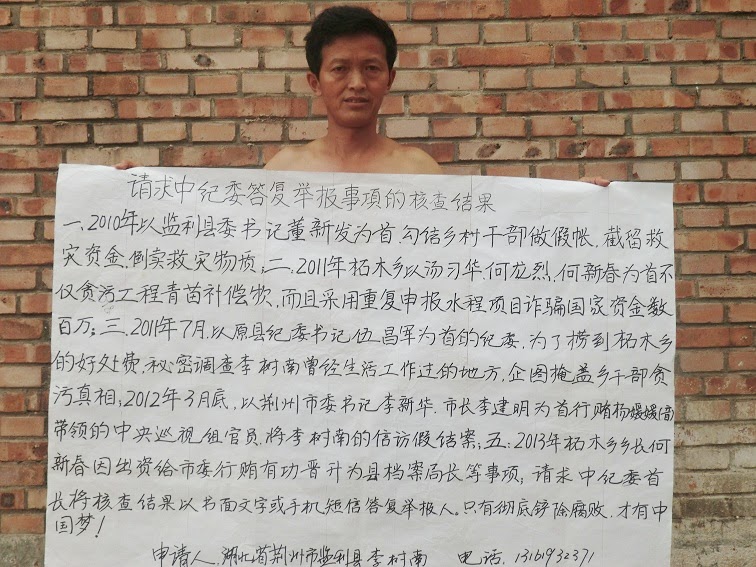 请求中纪委答复举报事项的核查结果
一、2010年以监利县委书记董新发为首,勾结乡村干部做假帐,截留救
灾资金,倒卖救灾物质;二、2011年柘木乡以汤习华何龙烈,何新春为首不
仅贪污工程青苗补偿款,而且采用重复申报水程项目诈骗国家资金数
百万;三、2011年7月,以原县纪委书记伍昌军为首的纪委,为了捞到柘木乡
的好处费,秘密调查李树南曾经生活工作过的地方,企图掩盖乡干部贪
污真相;2012年3月底,以荆州市委书记李新华,市长李建明为首行贿杨媛媛(音)
带领的中央巡视组官员,将李树南的信访假结案;五、2013年柘木乡乡长何
新春因出资给市委行贿有功晋升为县档案局长等事项;请求中纪委首
长将核查结果以书面文字或手机短信答复举报人。只有彻底铲除腐败,才有中
国梦!
申请人,湖北省荆州市监利县李树南 电话,13161932371